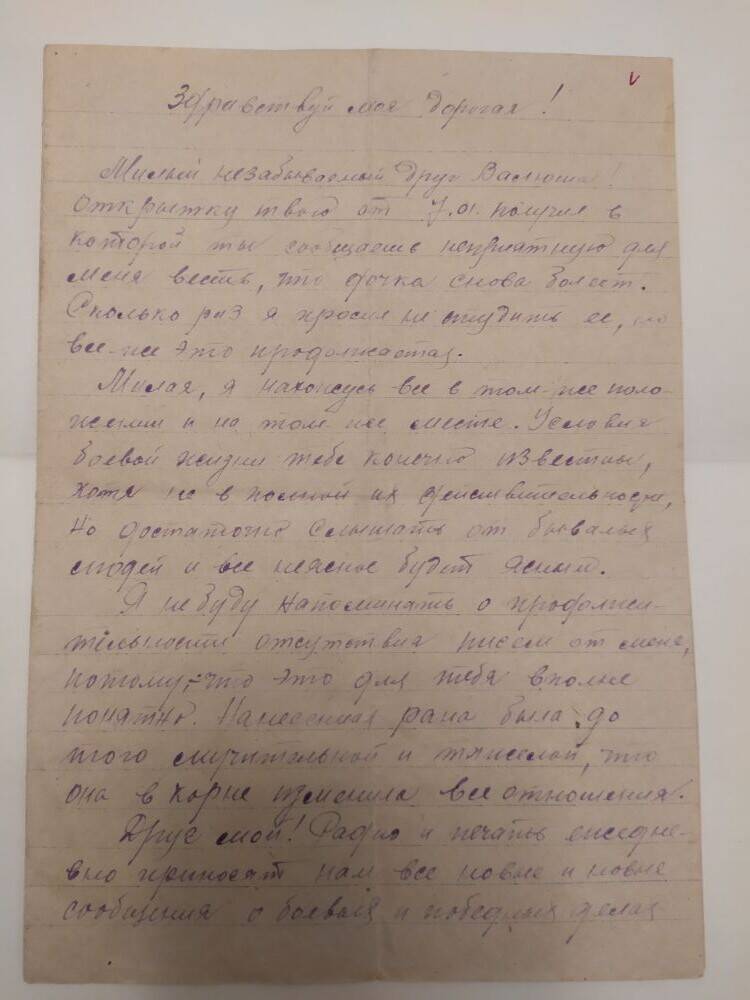 Здравствуй моя дорогая!
Милый незабываемый друг Валюша!
открытку твою от 7.01. получил в
которой ты сообщаешь неприятную для
меня весть, что дочка снова болеет.
Сколько раз я просил не студить ее, но
все-же это продолжается.
Милая, я нахожусь все в том-же поло-
жении и на том же месте. Условия
боевой жизни тебе конечно известны,
хотя не в полной их действительности,
но достаточно слышать от бывалых
людей и все неясное будет ясным.
Я не буду напоминать о продолжи-
тельности отсутствия писем от меня,
потому,-что это для тебя вполне
понятно. Нанесенная рана была до
того мучительной и тяжелой, что
она в корне изменила все отношения.
Друг мой! Радио и печать ежеднев-
но приносят нам все новые и новые
сообщения о боевых и победных делах